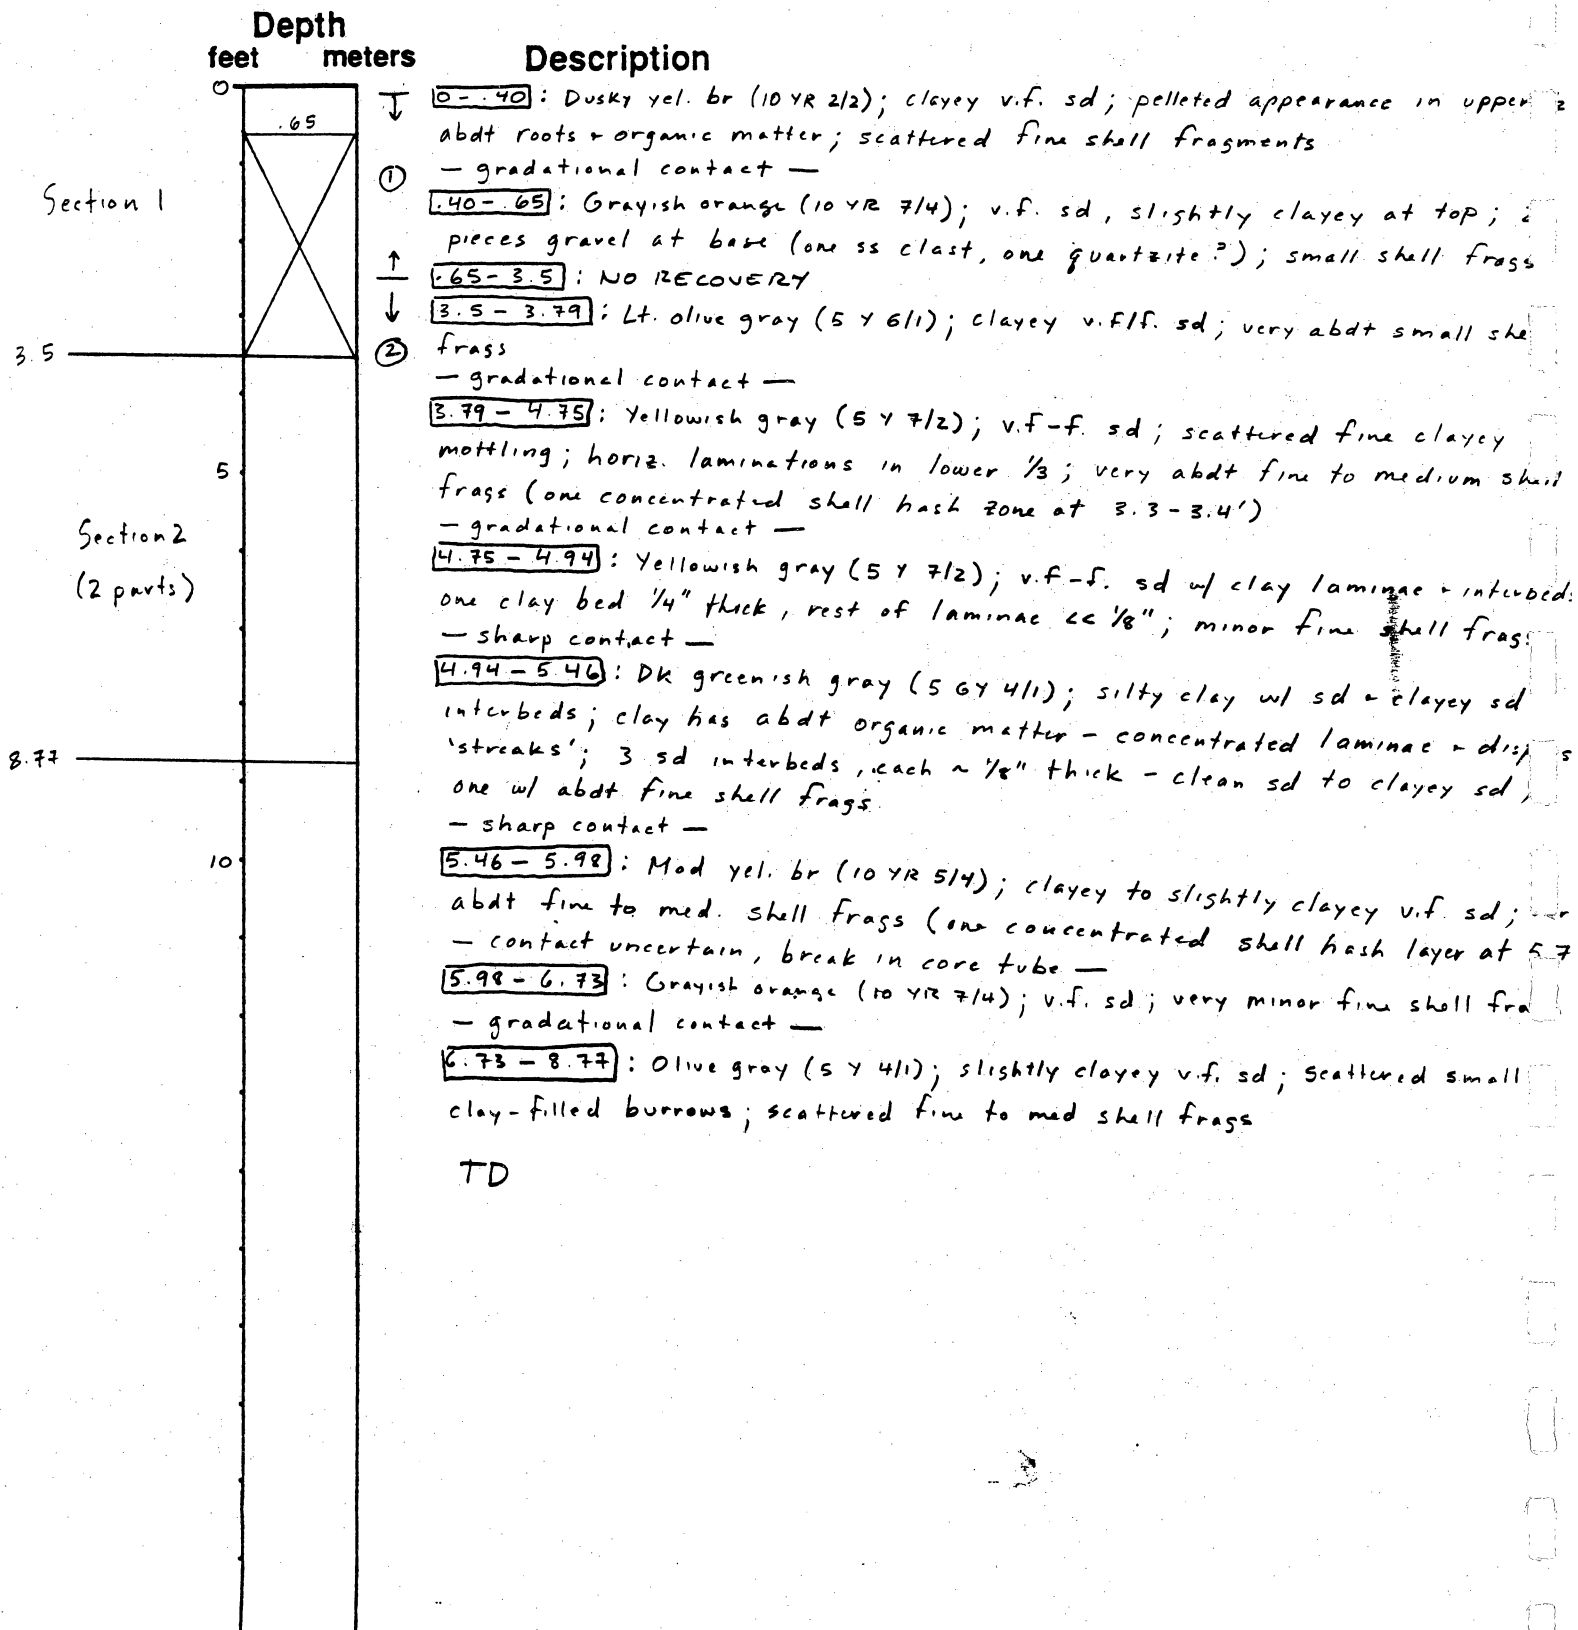 Depth
feet meters Description
0
.65
Section 1
3.5
5
Section 2
(2 parts)
8.77
10
①
②
0 - .40: Dusky yel. br (10 YR 2/2); clayey v.f. sd; pelleted appearance in upper 2
abdt roots + organic matter; scattered fine shell fragments
— gradational contact —
.40 - .65: Grayish orange (10 YR 7/4); v.f. sd, slightly clayey at top; 2
pieces gravel at base (one ss clast, one quartzite?); small shell frags
.65 - 3.5: NO RECOVERY
3.5 - 3.79: Lt. olive gray (5 Y 6/1); clayey v.f/f. sd; very abdt small she
frags
— gradational contact —
3.79 - 4.75: Yellowish gray (5 Y 7/2); v.f-f. sd; scattered fine clayey
mottling; horiz. laminations in lower 1/3; very abdt fine to medium shell
frags (one concentrated shell hash zone at 3.3-3.4')
— gradational contact —
4.75 - 4.94: Yellowish gray (5 Y 7/2); v.f-f. sd w/ clay laminae + interbeds
one clay bed 1/4" thick, rest of laminae << 1/8"; minor fine shell frags
— sharp contact —
4.94 - 5.46: Dk greenish gray (5 GY 4/1); silty clay w/ sd + clayey sd
interbeds; clay has abdt organic matter - concentrated laminae + disp s
'streaks'; 3 sd interbeds, each ~ 1/8" thick - clean sd to clayey sd,
one w/ abdt fine shell frags
— sharp contact —
5.46 - 5.98: Mod yel. br (10 YR 5/4); clayey to slightly clayey v.f. sd;
abdt fine to med. shell frags (one concentrated shell hash layer at 5.7
— contact uncertain, break in core tube —
5.98 - 6.73: Grayish orange (10 YR 7/4); v.f. sd; very minor fine shell fra
— gradational contact —
6.73 - 8.77: Olive gray (5 Y 4/1); slightly clayey v.f. sd; scattered small
clay-filled burrows; scattered fine to med shell frags
TD